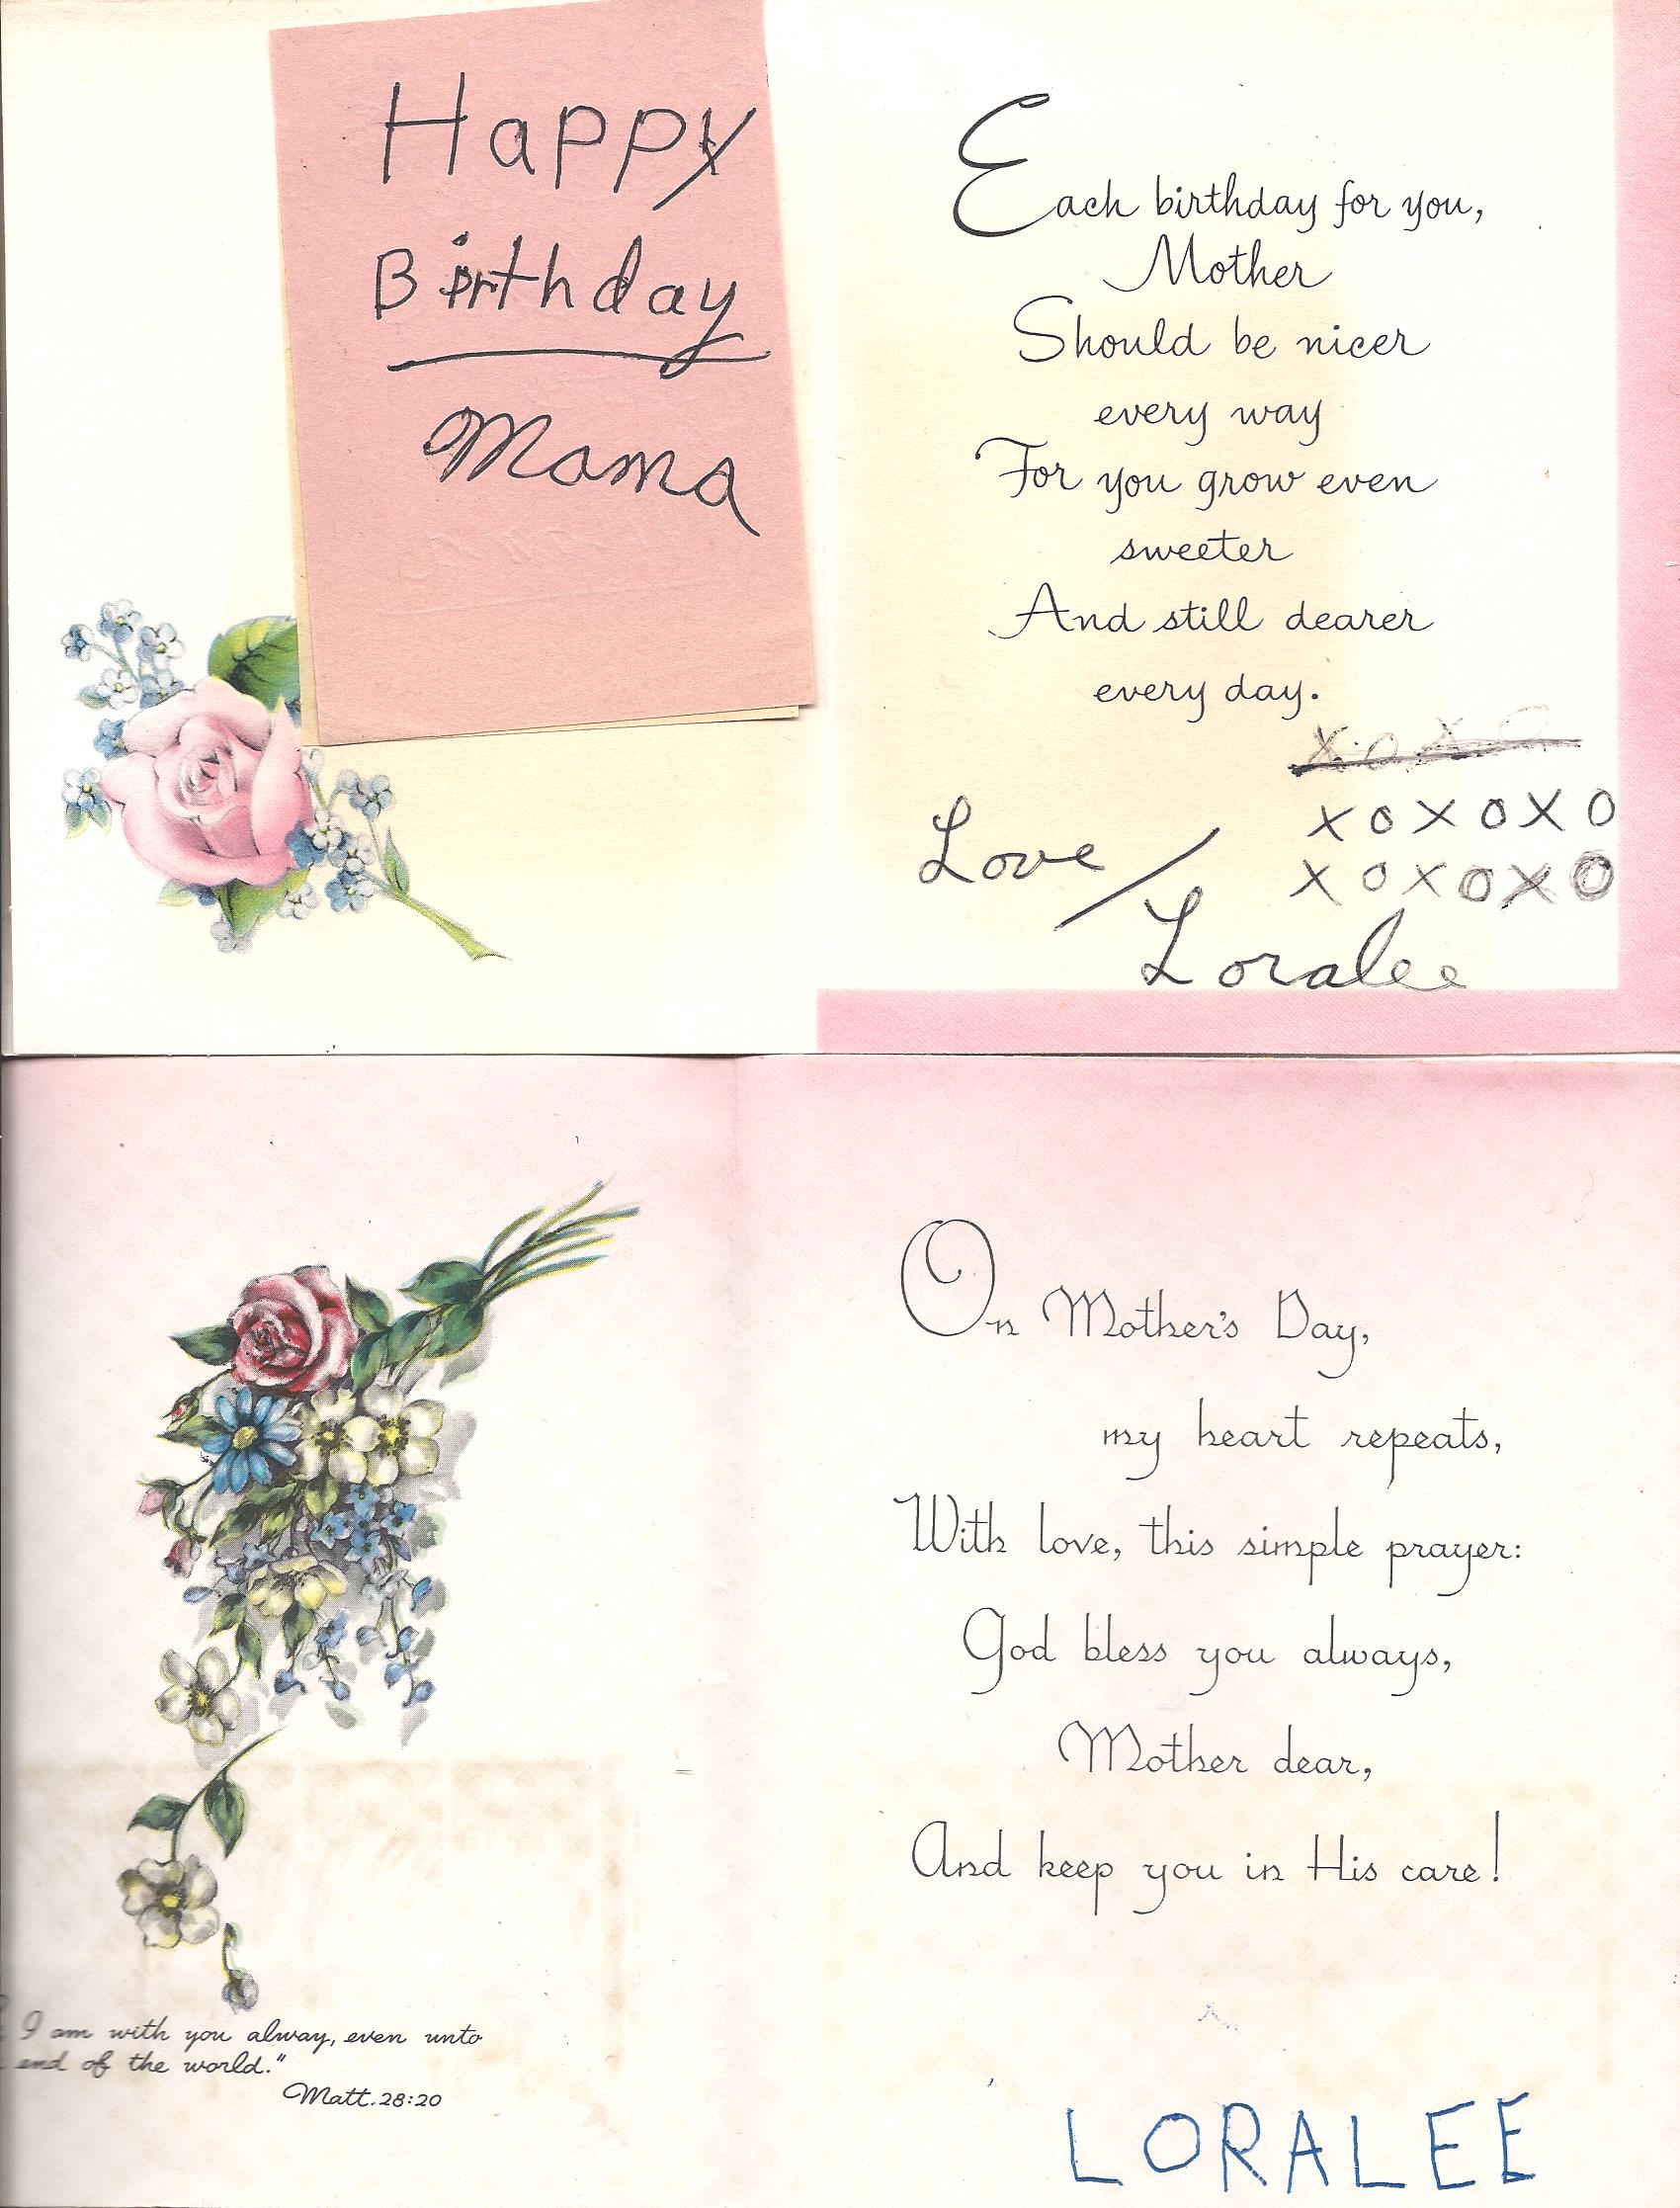 Happy
Birthday
Mama
Each birthday for you,
Mother
Should be nicer
every way
For you grow even
sweeter
And still dearer
every day.
XOXO
XOXOXO
XOXOXO
Love/
Loralee
On Mother's Day,
my heart repeats,
With love, this simple prayer:
God bless you always,
Mother dear,
And keep you in His care!
I am with you alway, even unto
end of the world."
Matt. 28:20
LORALEE